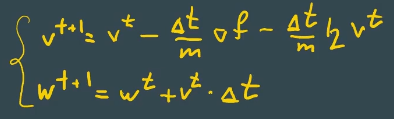 v^{t+1} = v^t - \frac{Δt}{m} ∇f - \frac{Δt}{m} h v^t
w^{t+1} = w^t + v^t · Δt